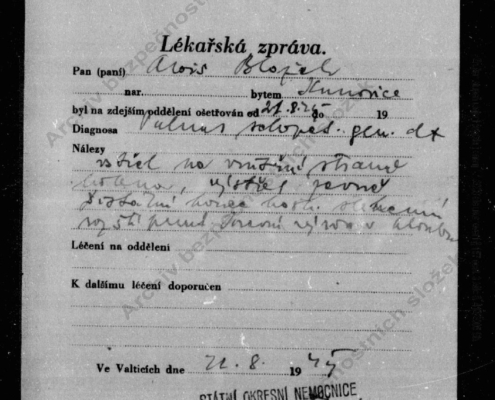 Lékařská zpráva.
Pan (paní) Alois Blažek
nar. bytem Kunovice
byl na zdejším oddělení ošetřován od 21.8.45 do 19
Diagnosa Vulnus sclopet. gen. dx
Nálezy
vstřel na vnitřní straně
kolena, výstřel zevně
konec kosti
v kloubu
Léčení na oddělení
K dalšímu léčení doporučen
Ve Valticích dne 21.8. 1945
STÁTNÍ OKRESNÍ NEMOCNICE
Archiv bezpečnostních složek